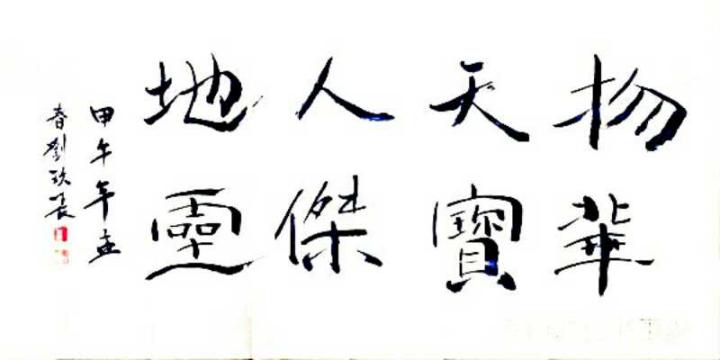 物華
天寶
人傑
地靈
甲午年孟
春劉玖長